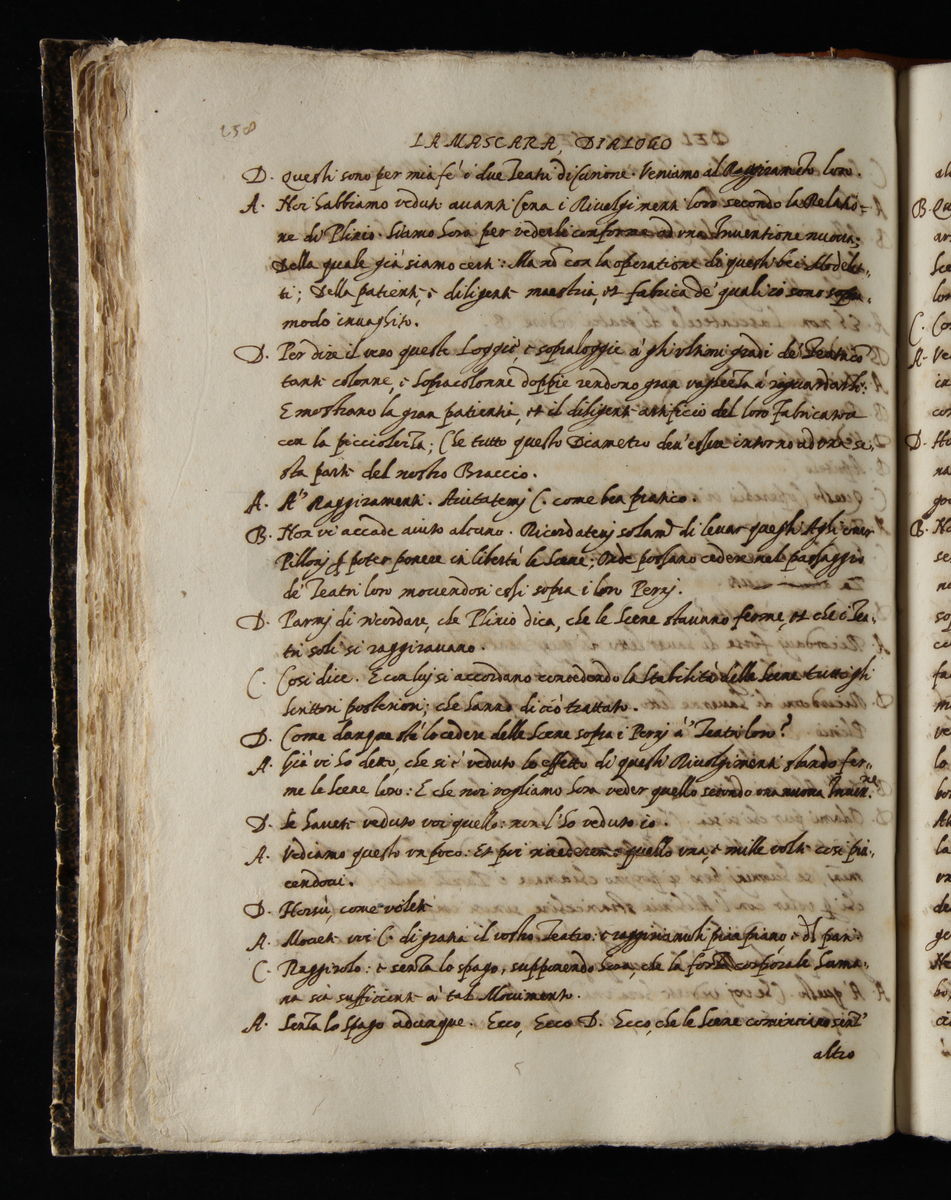 258
LA MASCARA, DIALOGO
D. Questi sono per mia fè i due Teatri di Curione. Veniamo al Raggiramēto loro.
A. Noi habbiamo veduti avanti Cena i Rivolgimenti loro secondo la Relatio=
ne di Plinio. Siamo hora per vederle conforme ad una Inventione nuova;
Della quale già siamo certi: Ma nō con la operatione di questi bei Modelet=
ti; Della patiente, e diligente maestria, et fabrica de' quali io sono sopra
modo invaghito.
D. Per dire il vero queste Loggie, e sopraloggie à gli ultimi gradi de' Teatri cō
tante colonne, e Sopracolonne doppie rendono gran vaghezza à riguardarli:
E mostrano la gran patientia, et il diligente artificio del loro Fabricatore
con la picciolezza; Che tutto questo Diametro dev'essere intorno ad una se=
sta parte del nostro Braccio.
A. A' Raggiramenti. Aiutatemj C. come ben pratico.
B. Non vi accade aiuto alcuno. Ricordatevj solamte di levar questi Aghi over
Pironj p poter porre in libertà le Scene; Onde possano cedere nel passaggio
de' Teatri loro movendosi così sopra i loro Pernj.
D. Parmj di ricordare, che Plinio dica, che le Scene stavano ferme, et che i Tea=
tri soli si raggiravano.
C. Così dice. E con luj si accordano concedendo la Stabilità delle Scene tutti gli
Scrittori posteriori; che hanno di ciò trattato.
D. Come dunque stà lo cedere delle Scene sopra i Pernj à' Teatri loro?
A. Già vi ho detto, che si è veduto lo effetto di questi Rivolgimenti stando fer=
me le Scene loro: E che noi vogliamo hora veder quello secondo una nuova Invēne.
D. Se havete veduto voi quello: non l'ho veduto io.
A. Vediamo questo un poco: Et poi rivederemo quello una, e mille volte così pia=
cendovi.
D. Horsù, come volete
A. Movete voi C. di gratia il vostro Teatro: e raggirianli pian piano, e dl pari.
C. Raggirolo: e senza lo spago, supponendo hora, che la forza corporale huma=
na sia sufficiente à tal Movimento.
A. Senza lo spago adunque. Ecco, Ecco D. Ecco, che le Scene cominciano senz'
altro